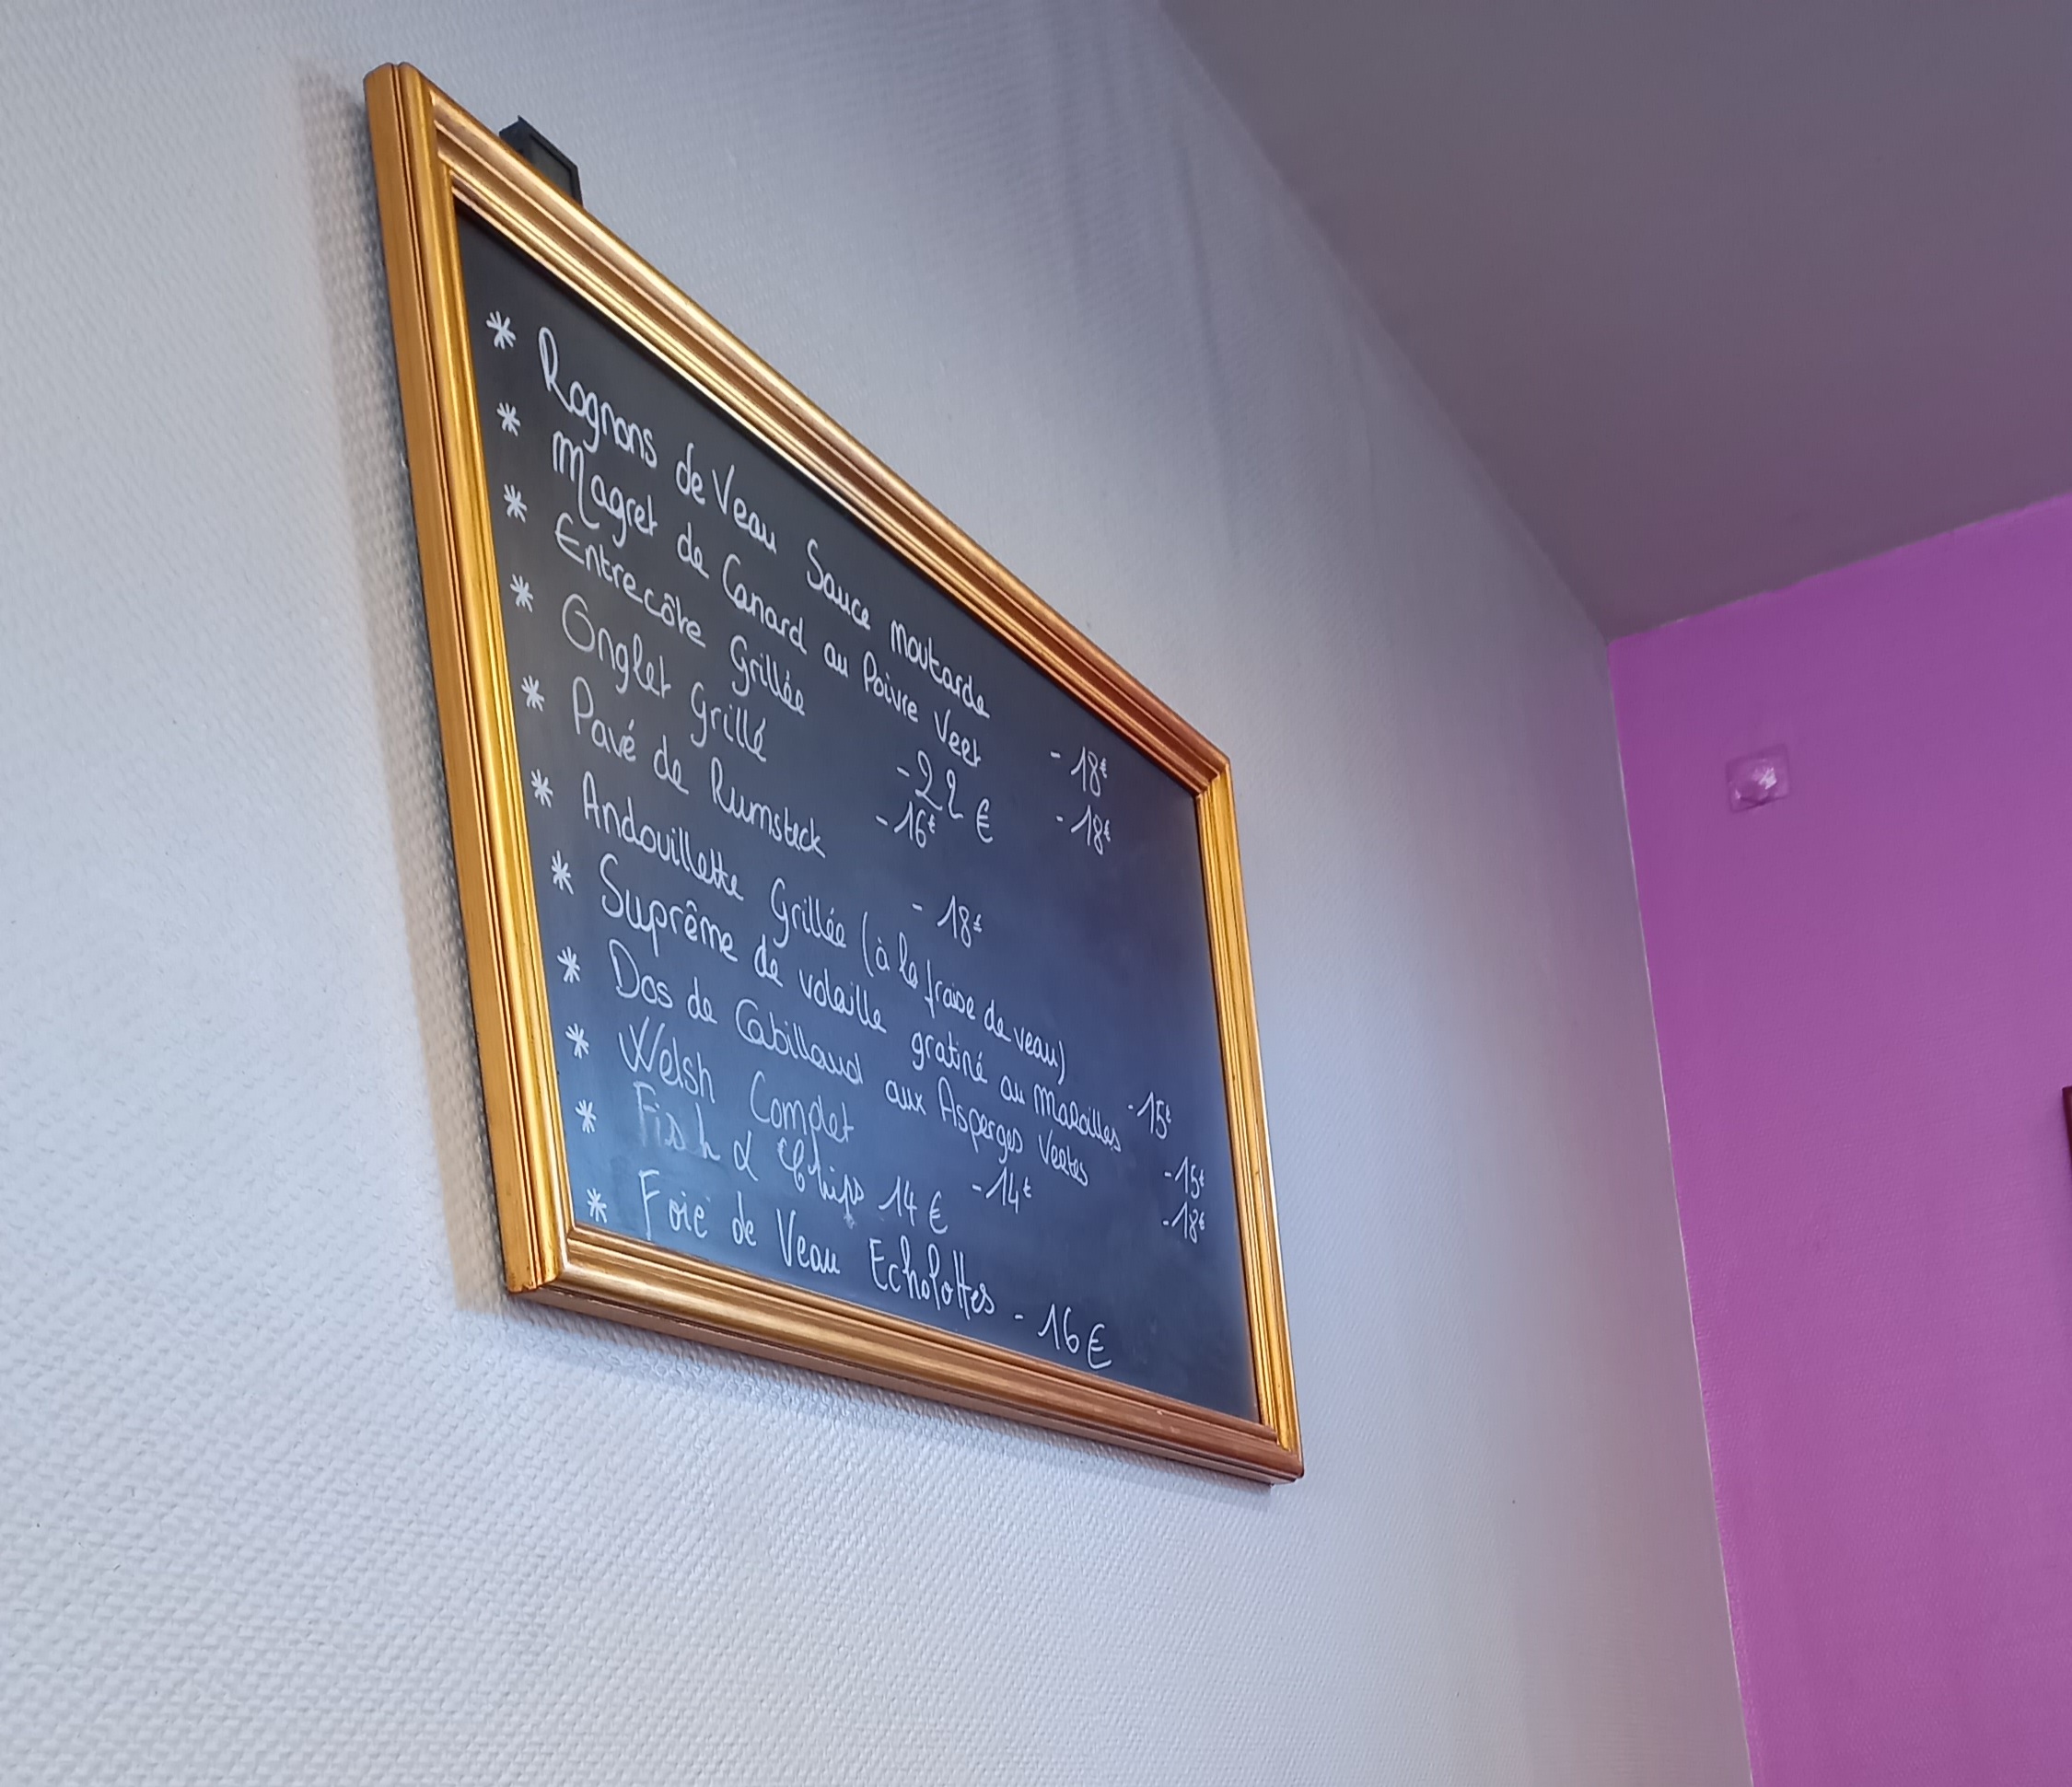 * Rognons de Veau Sauce Moutarde - 18€
* Magret de Canard au Poivre Vert - 18€
* Entrecôte Grillée - 22 €
* Onglet Grillé - 16€
* Pavé de Rumsteck - 18€
* Andouillette Grillée (à la fraise de veau) - 15€
* Suprême de volaille gratiné au Maroilles - 15€
* Dos de Cabillaud aux Asperges Vertes - 18€
* Welsh Complet - 14€
* Fish & Chips 14 €
* Foie de Veau Echalottes - 16 €